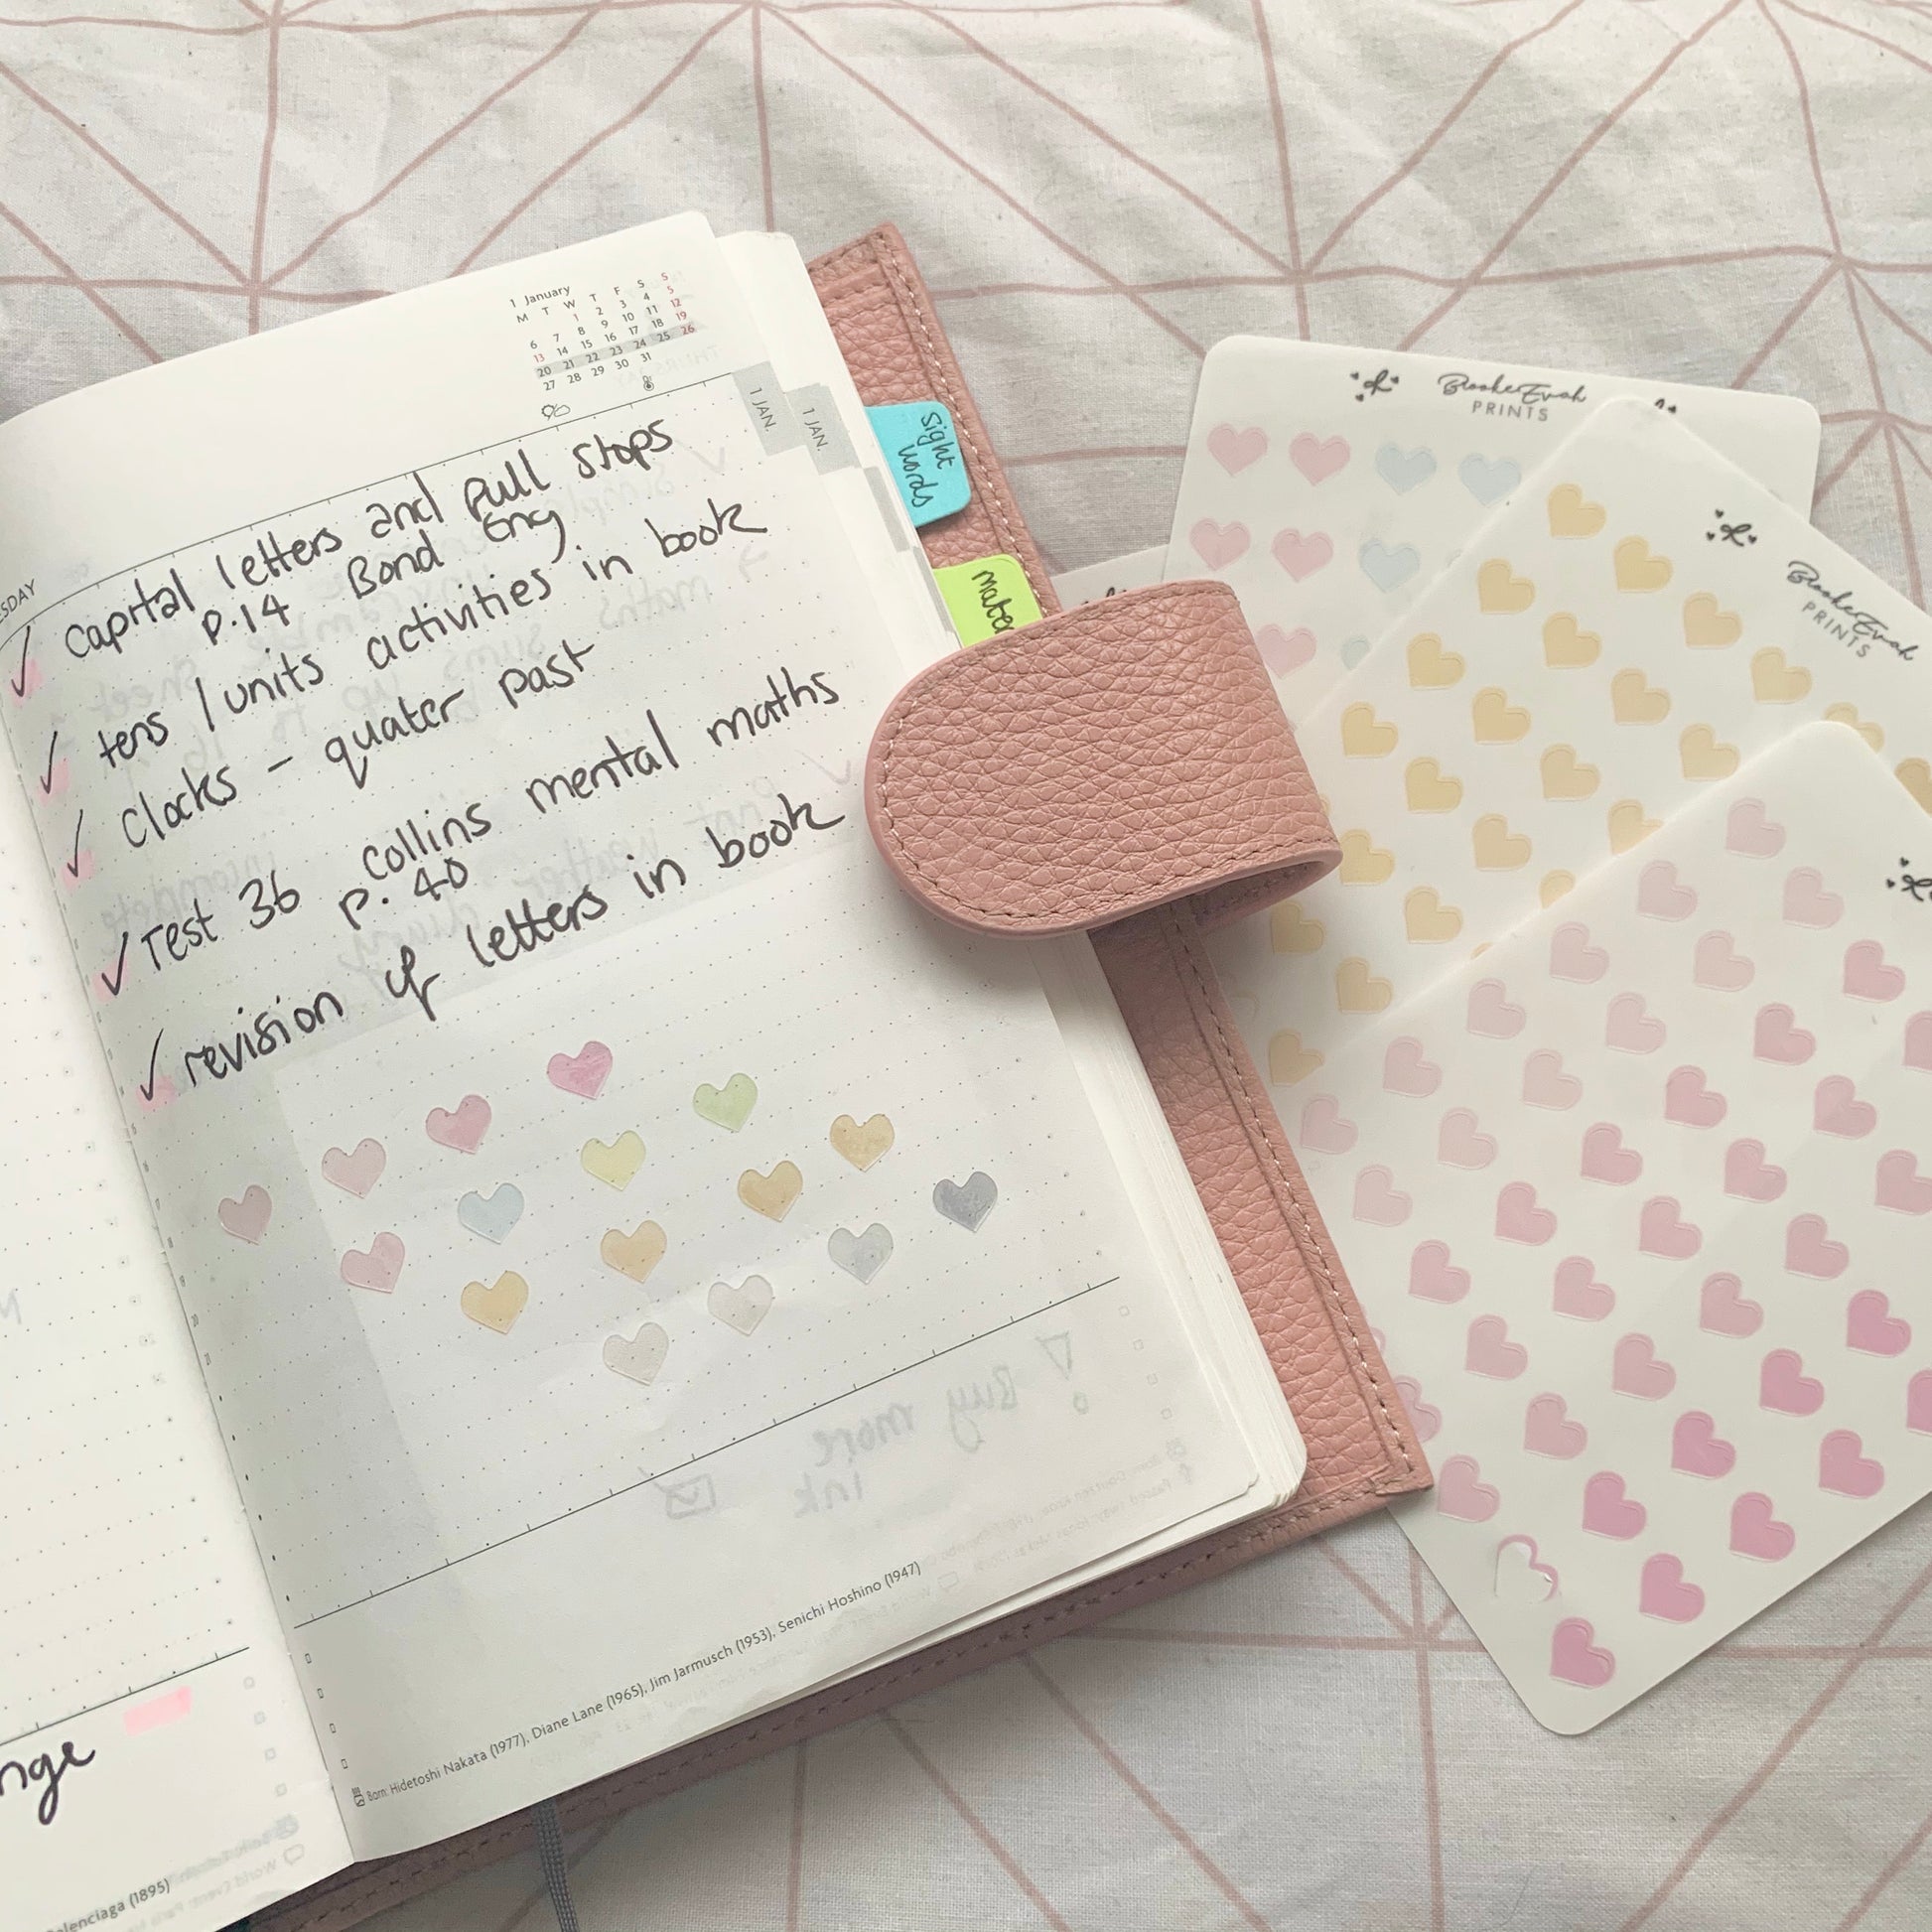 1 January
M T W T F S S
1 2 3 4 5
6 7 8 9 10 11 12
13 14 15 16 17 18 19
20 21 22 23 24 25 26
27 28 29 30 31
1 JAN.
1 JAN.
SDAY
✓ Capital letters and full stops
p.14 Bond Eng
✓ tens / units activities in book
✓ Clocks - quater past
✓ Test 36 collins mental maths
p. 40
✓ revision of letters in book
Born: Hidetoshi Nakata (1977), Diane Lane (1965), Jim Jarmusch (1953), Senichi Hoshino (1947)
nge
alenciaga (1895)
Sight
words
Buy more
ink
BrookeEvah
PRINTS
BrookeEvah
PRINTS